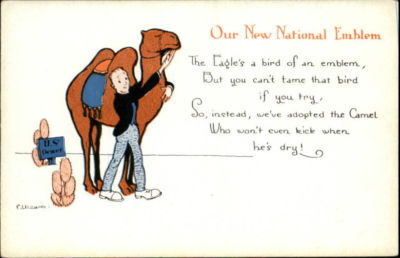 Our New National Emblem
The Eagle's a bird of an emblem,
But you can't tame that bird
if you try,
So, instead, we've adopted the Camel
Who won't even kick when
he's dry!
U.S.